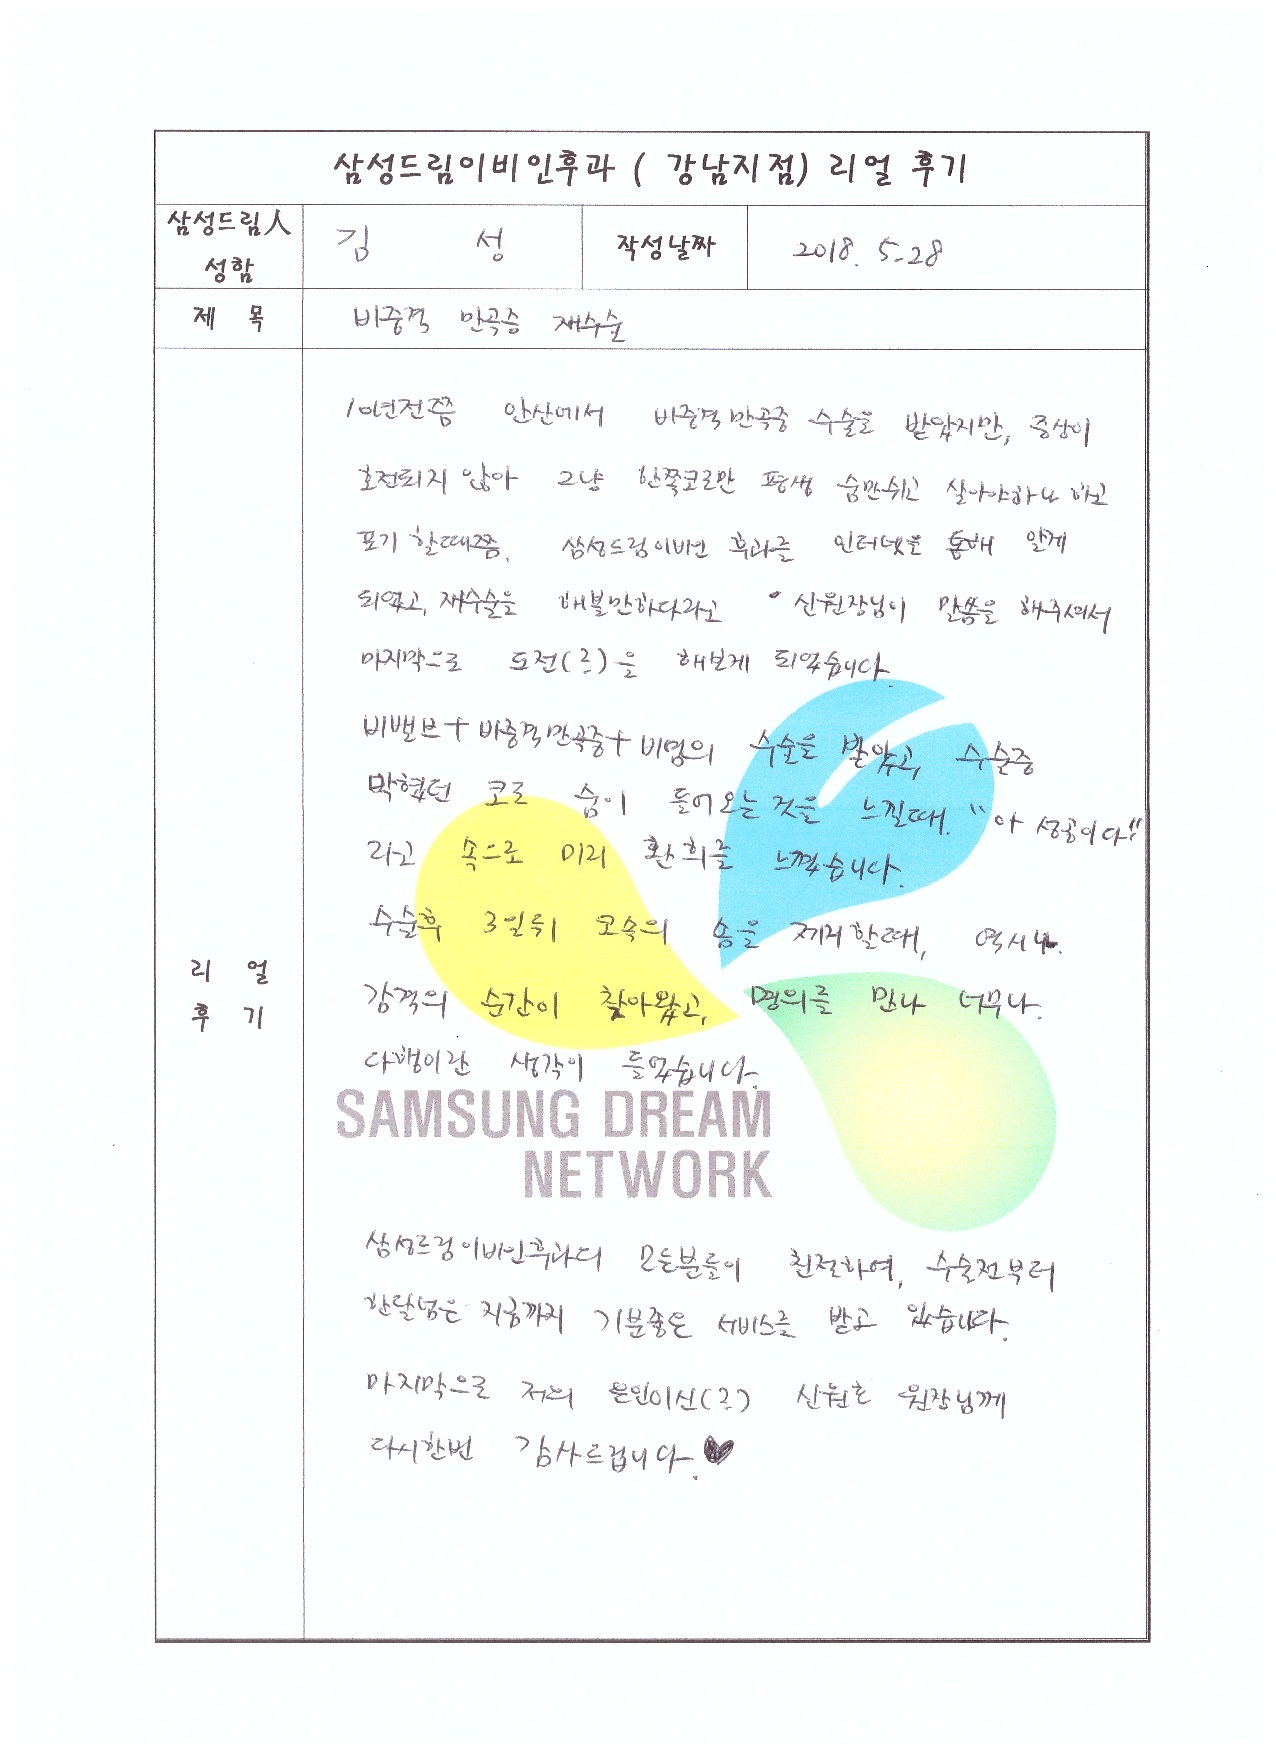 삼성드림이비인후과 ( 강남지점) 리얼 후기
삼성드림人 성함
김 성
작성날짜
2018. 5-28
제 목
비중격 만곡증 재수술
리 얼 후 기
10년전쯤 안산에서 비중격만곡증 수술을 받았지만, 증상이
호전되지 않아 그냥 한쪽코로만 평생 숨만쉬고 살아야하나 하고
포기 할때쯤, 삼성드림이비인 후과를 인터넷을 통해 알게
되었고, 재수술을 해볼만하다라고 신원장님이 말씀을 해주셔서
마지막으로 도전(?)을 해보게 되었습니다.
비밸브+비중격만곡증+비염의 수술을 받았고, 수술중
막혔던 코로 숨이 들어오는 것을 느낄때. "아 성공이다!!
라고 속으로 미리 환희를 느꼈습니다.
수술후 3일뒤 코속의 솜을 제거할때, 역시나.
감격의 순간이 찾아왔고, 명의를 만나 너무나.
다행이란 생각이 들었습니다.
SAMSUNG DREAM
NETWORK
삼성드림이비인후과의 모든분들이 친절하여, 수술전부터
한달넘은 지금까지 기분좋은 서비스를 받고 있습니다.
마지막으로 저의 은인이신(?) 신원호 원장님께
다시한번 감사드립니다.♥